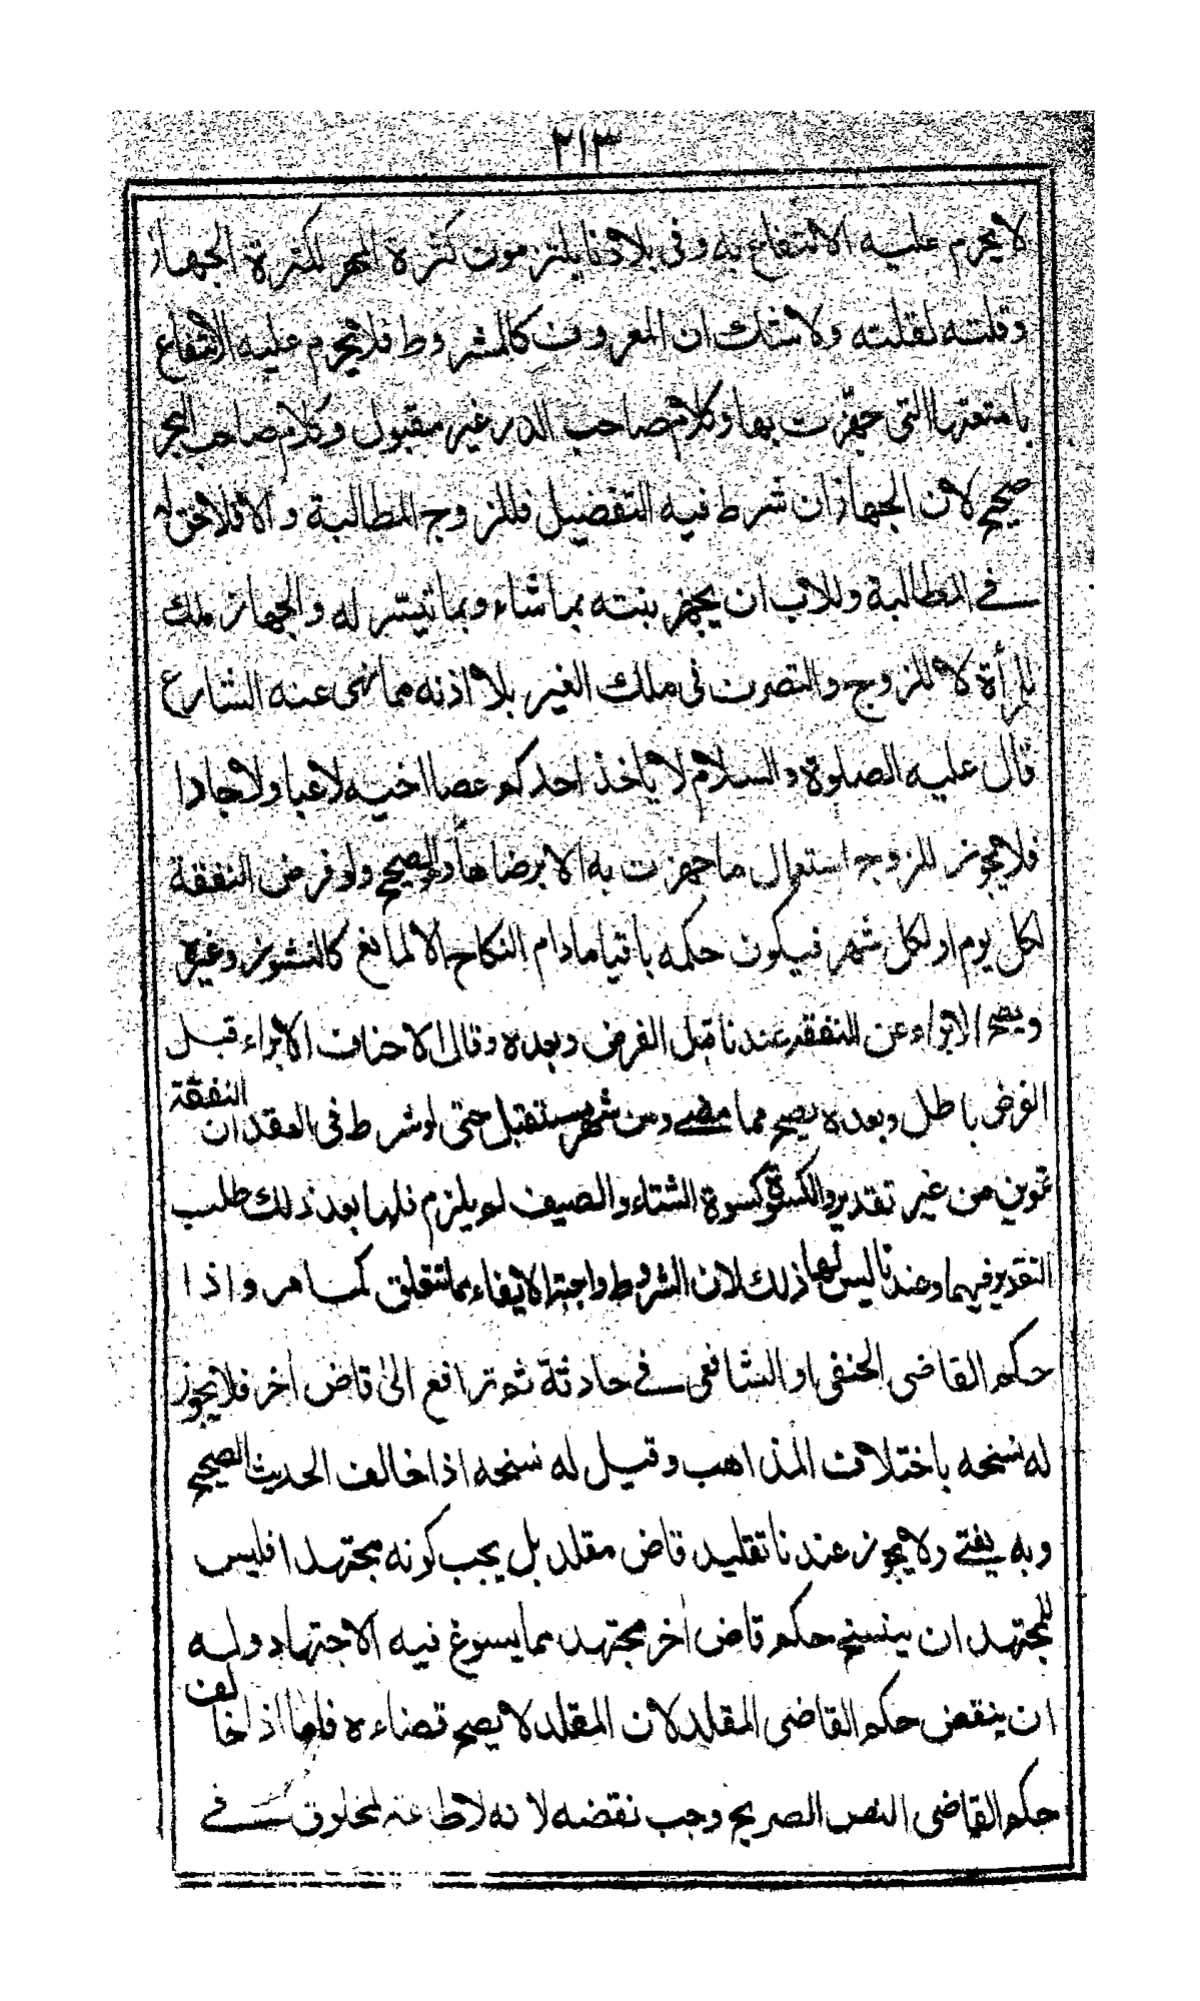 ٢١٣
لا يحرم عليه الانتفاع به وفى بلادنا يلتزمون كثرة المهر لكثرة الجهاز
وقلته لقلته ولا شك ان المعروف كالمشروط فلا يحرم عليه الانتفاع
بامتعتها التى جهّزت بها وكلام صاحب الدر غير مقبول وكلام صاحب البحر
صحيح لان الجهاز ان شرط فيه التفضيل فللزوج المطالبة والا فلا حق له
فے المطالبة وللاب ان يجهز بنته بما شاء وبما تيسّر له والجهاز ملك
للمرأة لا للزوج والتصرف فى ملك الغير بلا اذنه مما نهى عنه الشارع
قال عليه الصلوة والسلام لا ياخذ احدكم عصا اخيه لاعبا ولا جادا
فلا يجوز للزوج استعمال ما جهزت به الا برضاها والصحيح ولو فرض النفقة
لكل يوم او لكل شهر فيكون حكمه باقيا مادام النكاح الا لمانع كالنشوز وغيره
ويصح الابراء عن النفقة عندنا قبل الفرض وبعده وقال الاحناف الابراء قبل
الفرض باطل وبعده يصح مما مضے ومن شهر مستقبل حتى لو شرط فى العقد ان النفقة
تموين من غير تقدير والكسوة كسوة الشتاء والصيف لم يلزم فلها بعد ذلك طلب
التقدير فيهما وعندنا ليس لها ذلك لان الشروط واجبة الايفاء بما تتعلق كما مر واذا
حكم القاضى الحنفى او الشافعى فے حادثة ثم ترافع الى قاض أخر فلا يجوز
له نسخه باختلاف المذاهب وقيل له نسخه اذا خالف الحديث الصحيح
وبه يفتے ولا يجوز عندنا تقليد قاض مقلد بل يجب كونه مجتهدا فليس
للمجتهد ان ينسخ حكم قاض أخر مجتهد مما يسوغ فيه الاجتهاد وله
ان ينقض حكم القاضى المقلد لان المقلد لا يصح قضاءه فلهذا اذا خالف
حكم القاضى النص الصريح وجب نقضه لانه لا طاعة لمخلوق فے